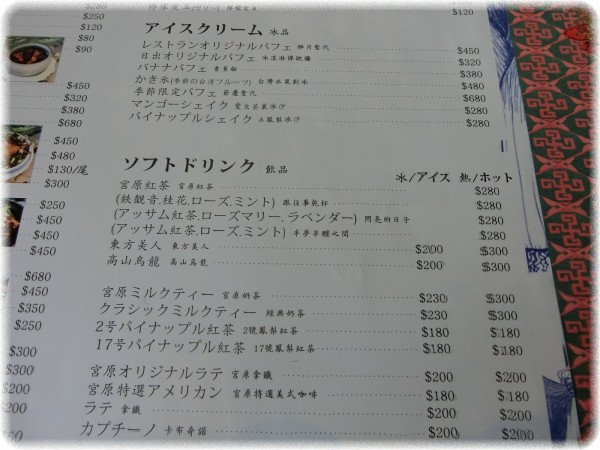 $280
$250
$120
$120
$80
$90
アイスクリーム 冰品
レストランオリジナルパフェ 醉月聖代 $450
日出オリジナルパフェ 冰淇淋傳說 $320
バナナパフェ 香蕉船 $380
かき氷(季節の台湾フルーツ) 台灣水果剉冰 $480
季節限定パフェ 節慶聖代 $680
マンゴーシェイク 愛文芒果冰沙 $280
パイナップルシェイク 土鳳梨冰沙 $280
$450
$320
$380
$680
$450
$480
$130/尾
$300
$250
$450
$450
$450
$680
$450
$350
$250
$300
$300
$200
$200
ソフトドリンク 飲品 冰/アイス 熱/ホット
宮原紅茶 宮原紅茶 $280
(鉄観音.桂花.ローズ.ミント) 跟往事乾杯 $280
(アッサム紅茶.ローズマリー.ラベンダー) 閃亮的日子 $280
(アッサム紅茶.ローズ.ミント) 半夢半醒之間 $280
東方美人 東方美人 $200 $300
高山烏龍 高山烏龍 $200 $300
宮原ミルクティー 宮原奶茶 $230 $300
クラシックミルクティー 經典奶茶 $230 $300
2号パイナップル紅茶 2號鳳梨紅茶 $180 $180
17号パイナップル紅茶 17號鳳梨紅茶 $180 $180
宮原オリジナルラテ 宮原拿鐵 $200 $200
宮原特選アメリカン 宮原精選美式咖啡 $180 $180
ラテ 拿鐵 $200 $200
カプチーノ 卡布奇諾 $200 $200